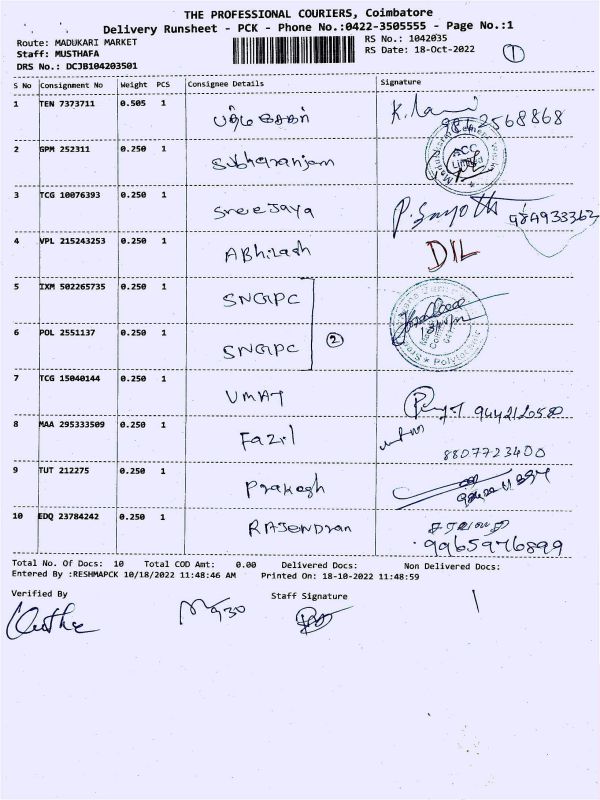 THE PROFESSIONAL COURIERS, Coimbatore
Delivery Runsheet - PCK - Phone No.:0422-3505555 - Page No.:1
Route: MADUKARI MARKET
RS No.: 1042035
Staff: MUSTHAFA
RS Date: 18-Oct-2022
1
DRS No.: DCJB104203501
S No Consignment No Weight PCS Consignee Details Signature
1 TEN 7373711 0.505 1 K.
2 GPM 252311 0.250 1 Subharanjam
ACC
3 TCG 10076393 0.250 1 Sreejaya
4 VPL 215243253 0.250 1 Abhilash DIL
5 IXM 502265735 0.250 1 SNGPC
2
6 POL 2551137 0.250 1 SNGPC
7 TCG 15040144 0.250 1 UMAT
8 MAA 295333509 0.250 1 Fazil 8807723400
9 TUT 212275 0.250 1 Prakash
10 EDQ 23784242 0.250 1 RAJENDran
9965976899
Total No. Of Docs: 10 Total COD Amt: 0.00 Delivered Docs: Non Delivered Docs:
Entered By :RESHMAPCK 10/18/2022 11:48:46 AM Printed On: 18-10-2022 11:48:59
Verified By
Staff Signature